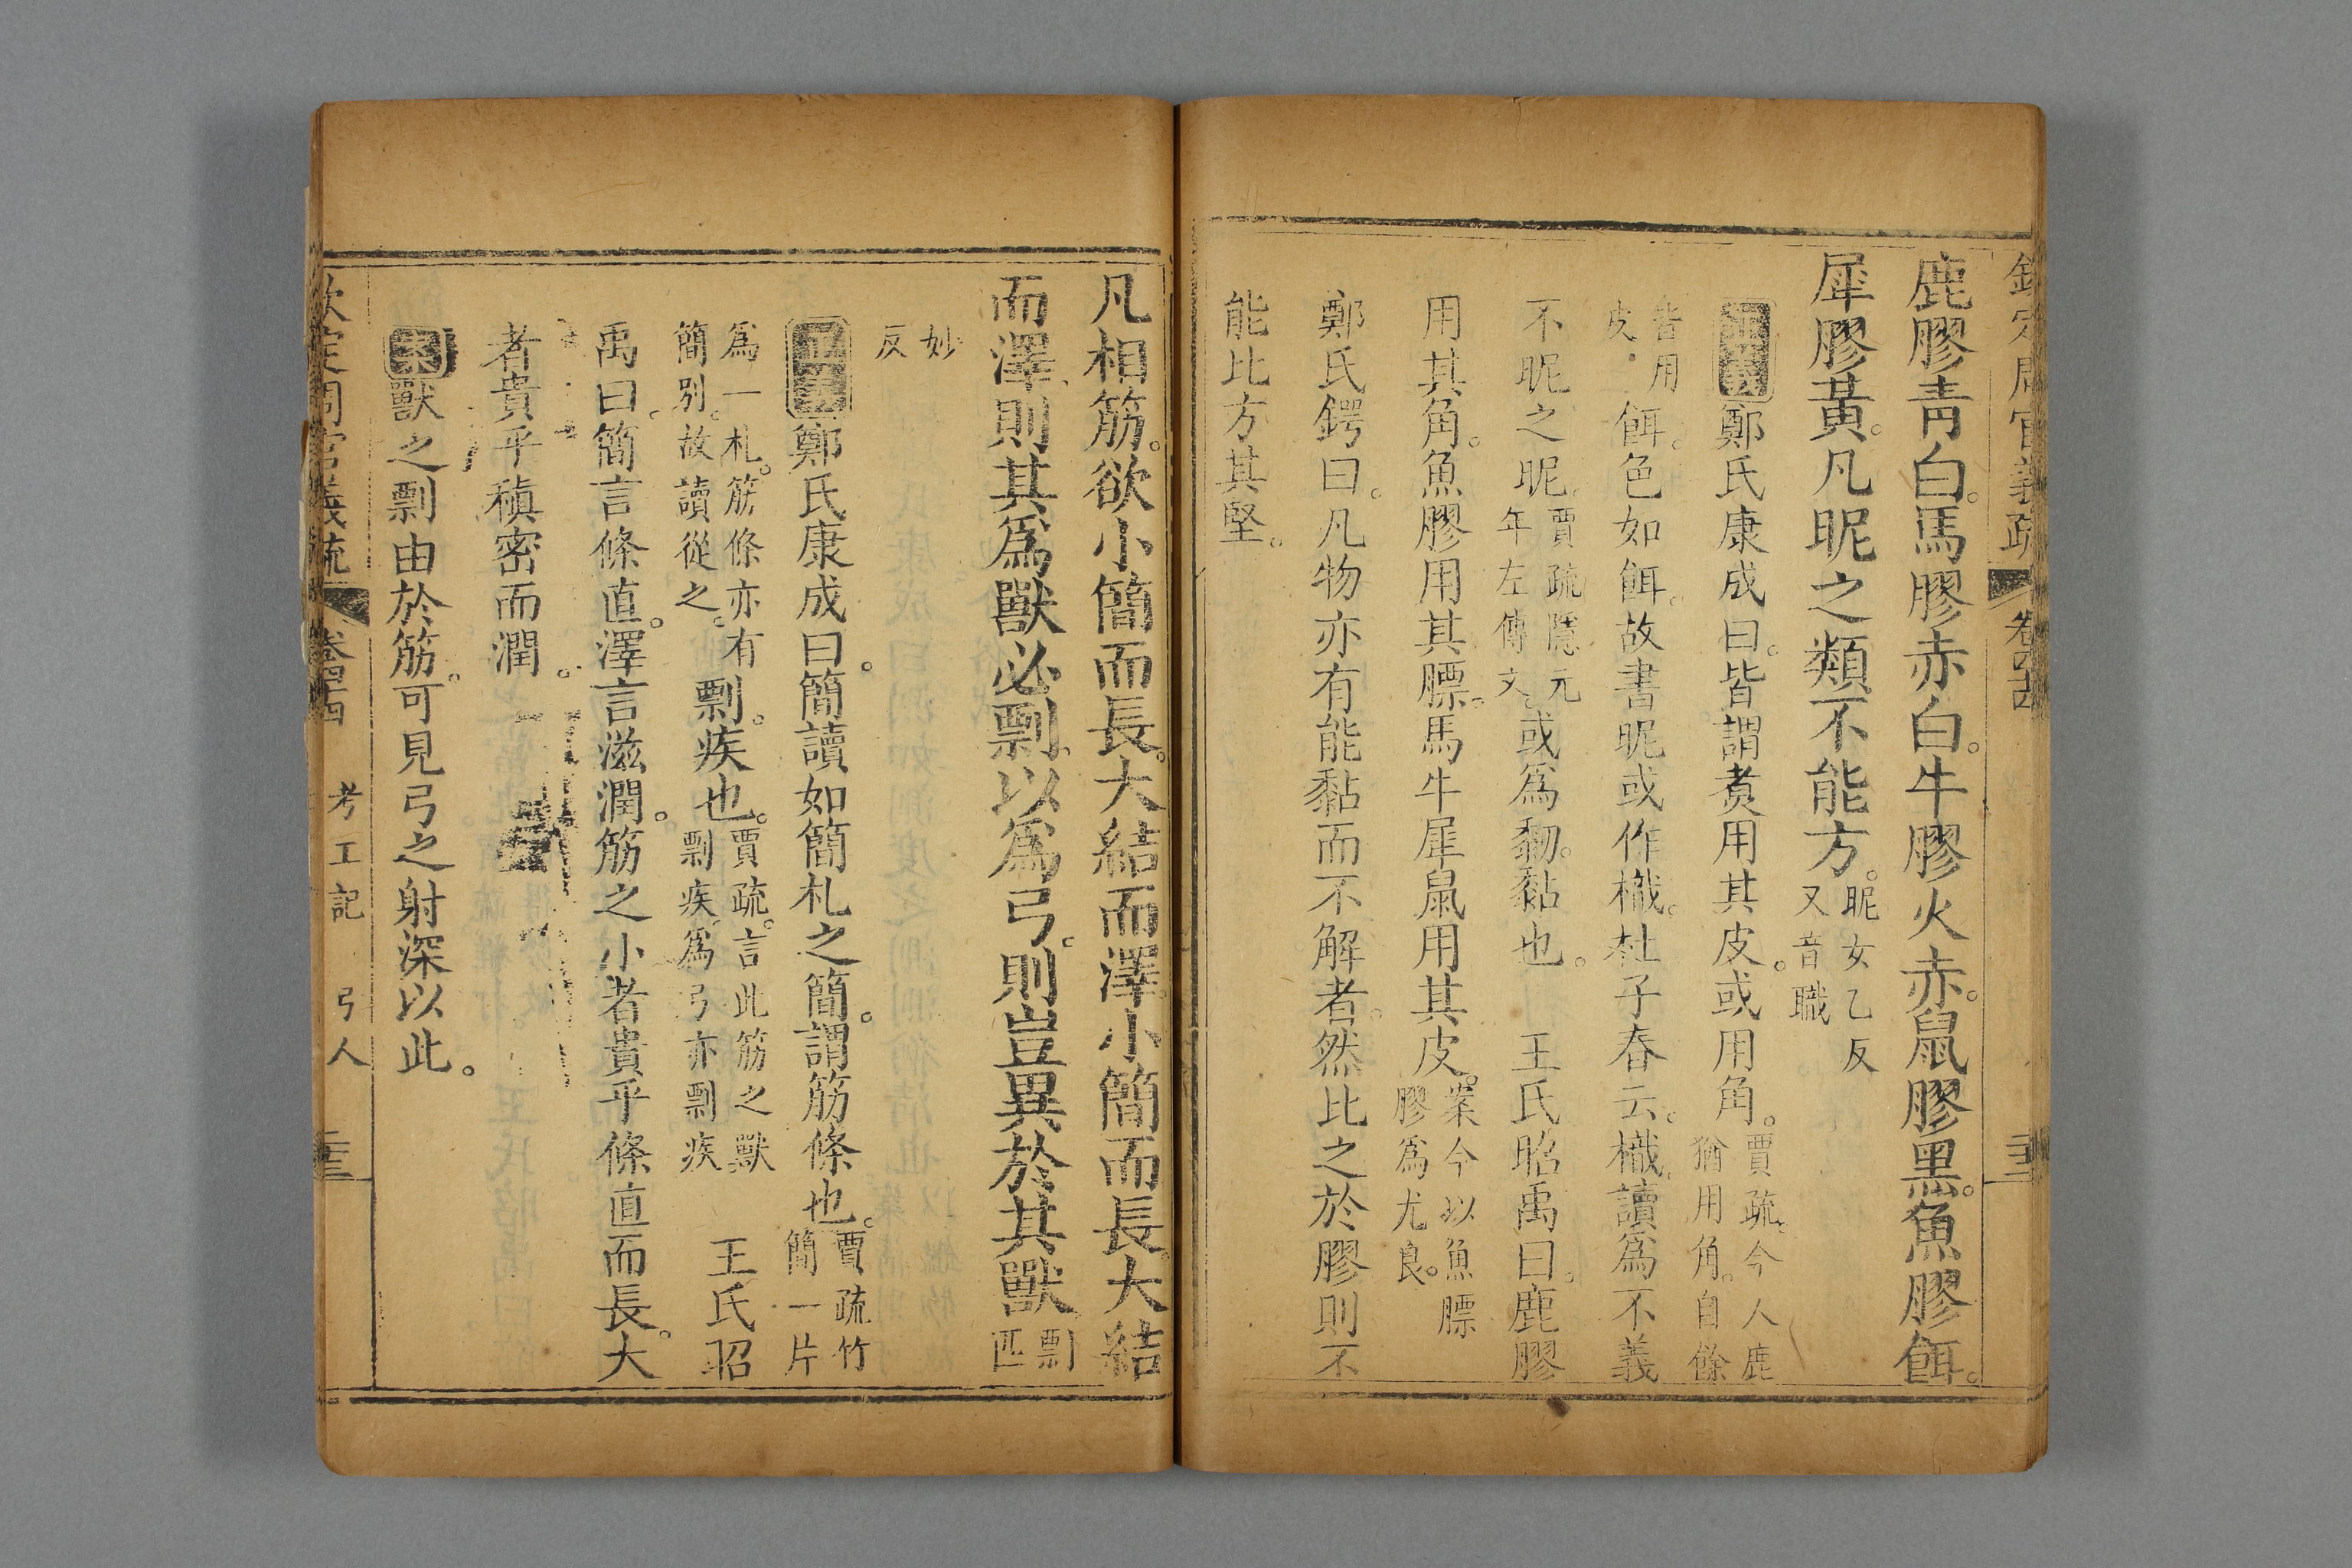 欽定周官義疏 卷四十四
鹿膠青白。馬膠赤白。牛膠火赤。鼠膠黑。魚膠餌。
犀膠黃。凡昵之類不能方。昵女乙反
又音職
正義鄭氏康成曰。皆謂煮用其皮。或用角。賈疏。今人鹿
猶用角。自餘
皆用
皮。餌。色如餌。故書昵或作樴。杜子春云。樴讀爲不義
不昵之昵。賈疏隱元
年左傳文。或爲䵑。黏也。 王氏昭禹曰。鹿膠
用其角。魚膠用其膘。馬牛犀鼠用其皮。案今以魚膘
膠爲尤良。
鄭氏鍔曰。凡物亦有能黏而不解者。然比之於膠則不
能比方其堅。
凡相筋。欲小簡而長。大結而澤。小簡而長。大結
而澤。則其爲獸必剽。以爲弓。則豈異於其獸。剽
匹
妙
反
正義鄭氏康成曰。簡讀如簡札之簡。謂筋條也。賈疏竹
簡一片
爲一札。筋條亦有
簡別。故讀從之。剽。疾也。賈疏。言此筋之獸
剽疾。爲弓亦剽疾。 王氏昭
禹曰。簡言條直。澤言滋潤。筋之小者貴乎條直而長。大
者貴乎稹密而潤。
案獸之剽由於筋。可見弓之射深以此。
欽定周官義疏 卷四十四 考工記 弓人